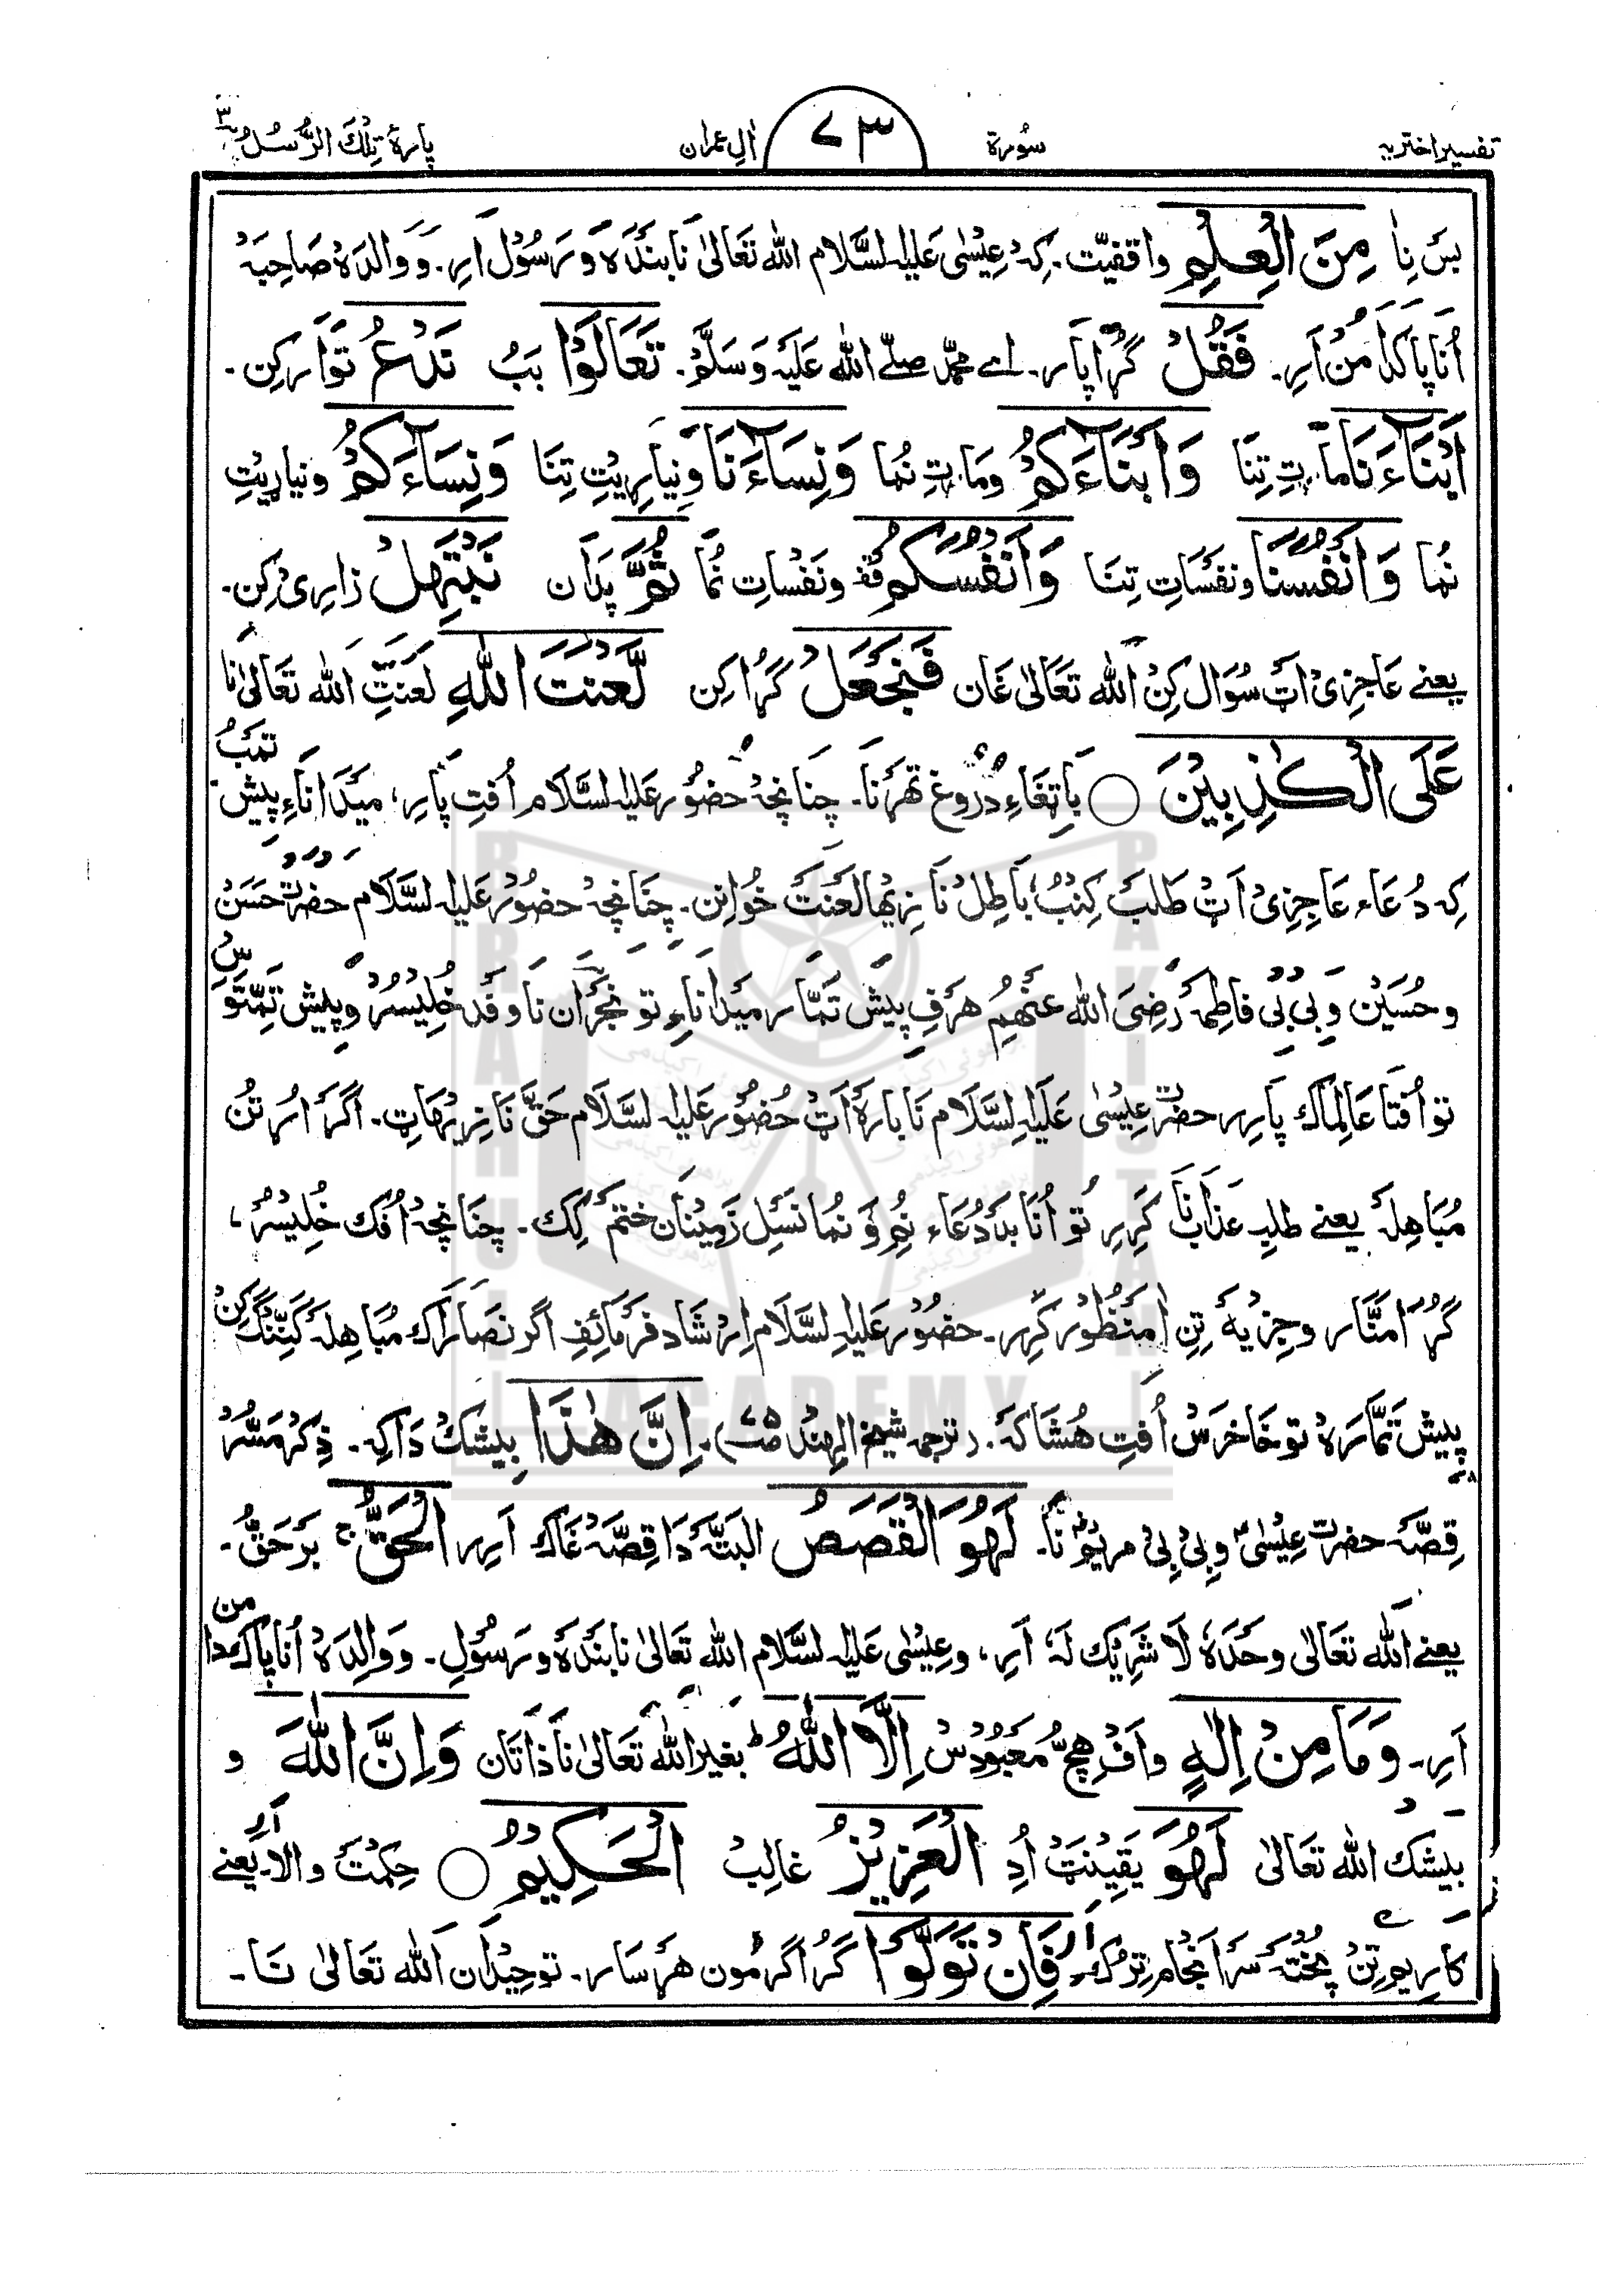 تفسیر اختریہ سُورة ۷۳ اٰلِ عمران پارۂ تِلْكَ الرُّسُلُ ۳
بَس نِا مِنَ الْعِلْمِ واقفیّت. کِہ عِیْسٰی عَلَیْہِ السَّلَام اللہ تَعَالٰی نَا بَنْدَہ وَ رَسُوْل اَرِ. وَ والدَہ صَاحِبَہ
اُنَا پاکدَامُن اَرِ. فَقُلْ گُڑا پَار. اے محمّد صلّے اللہ عَلَیْہ وَسَلَّمْ. تَعَالَوْا بَبُ نَدْعُ تَوَار کِن.
اَبْنَآءَنَا مَاتِ تِنَا وَاَبْنَآءَكُمْ وَمَاتِ نُمَا وَنِسَآءَنَا وَنِیَارِیْتِ تِنَا وَنِسَآءَكُمْ وَنِیَارِیْتِ
نُمَا وَاَنْفُسَنَا وَنَفْسَاتِ تِنَا وَاَنْفُسَكُمْ قف وَنَفْسَاتِ نُمَا ثُمَّ پَدَان نَبْتَهِلْ زارِیْ کِن.
یعنے عَاجِزِیْ اَٹ سُوَال کِنْ اللہ تَعَالٰی غَان فَنَجْعَلْ گُڑا کِن لَّعْنَتَ اللّٰهِ لَعنَتِ اللہ تَعَالٰی نَا
عَلَى الْكٰذِبِيْنَ ○ بَاتِغَاءِ دُرُوغ تَهرنَا. چنَانچہ حضُوْر عَلَیْہِ السَّلَام اُفتِ پَارِ، مَیْدَانَاءِ پیش تمَّبُ
کِہ دُعَاء عَاجِزِیْ اَٹ طَلَب کِنُبْ، بَاطِلْ نَا زِیْهَا لَعْنَتْ خُوانِن. چنَانچہ حضُوْر عَلَیْہِ السَّلَام حضرت حَسَنْ
و حُسَیْن وَ بِی بِی فاطِمہ رَضِیَ اللہ عَنْهُم هَرفِ پیش تَمَّار مَیْدَانَاءِ تو نجرَان نَا وَفْد خُلِیسُر وَ پیش تَمِّتَوسُ
تو اُفتَا عَالِمَاک پَارِر حضرت عِیْسٰی عَلَیْہِ السَّلَام نَا بَارَہ اَٹ حُضُوْر عَلَیْہِ السَّلَام حَقَّ نَا زِیْهَاتِ. اَگر اُرتُن
مُبَاهِلَہ یعنے طلبِ عَذَاب نَا کَرِیر تُو اُنَا بَددُعَاء نُم وَ نُمَا نَسْل زَمِیْنَان ختم کِک. چنَانچہ اُفک خُلِیسُر،
گُڑا مَنَّار و جِزیَہ تِن اِ مَنْظُوْر کَرِر. حضُوْر عَلَیْہِ السَّلَام اِرْشَاد فَرْمَائِفِ اگر نَصَارَاک مُبَاهِلَہ کَنِّنگ کِن
پیش تَمَّارَہ تو خَاخَرسْ اُفتِ هُشَاکَہ. (ترجمہ شیخ الہند ص ۷۵). اِنَّ هٰذَا بیشک دَاکِہ. ذِکر مَسُّرْ
قِصَّہ حضرت عِیْسٰیؑ و بِی بِی مریمؑ نَا. لَهُوَ الْقَصَصُ البَتَّہ دَا قِصَّہ غَاک اَرِر الْحَقُّ ج بَرحَقُ.
یعنے اللہ تَعَالٰی وحدَہٗ لَا شَرِیْك لَہٗ اَرِ، وَعِیْسٰی عَلَیْہِ السَّلَام اللہ تَعَالٰی نَا بَنْدَہ و رَسُول. وَ وَالِدَہ اُنَا پاکدامن
اَرِ. وَمَا مِنْ اِلٰهٍ وَاَفْ هِچّ مَعْبُوْدس اِلَّا اللّٰهُ ط بغیر اللہ تَعَالٰی نَا ذَاتَان وَاِنَّ اللّٰهَ و
بیشک اللہ تَعَالٰی لَهُوَ یَقِیْنَٹ اُدِ الْعَزِيْزُ غالِبْ الْحَكِيْمُ ○ حِکْمَتْ والا اَرِ. یعنے
کارِیْم تِنْ پُختَہ سَرَانجَام تِرُک اَرِ فَاِنْ تَوَلَّوْا گُڑا اگر مُون هَرسَار. توحِیْدَان اللہ تَعَالٰی نَا.
BRAHUI ACADEMY PAKISTAN